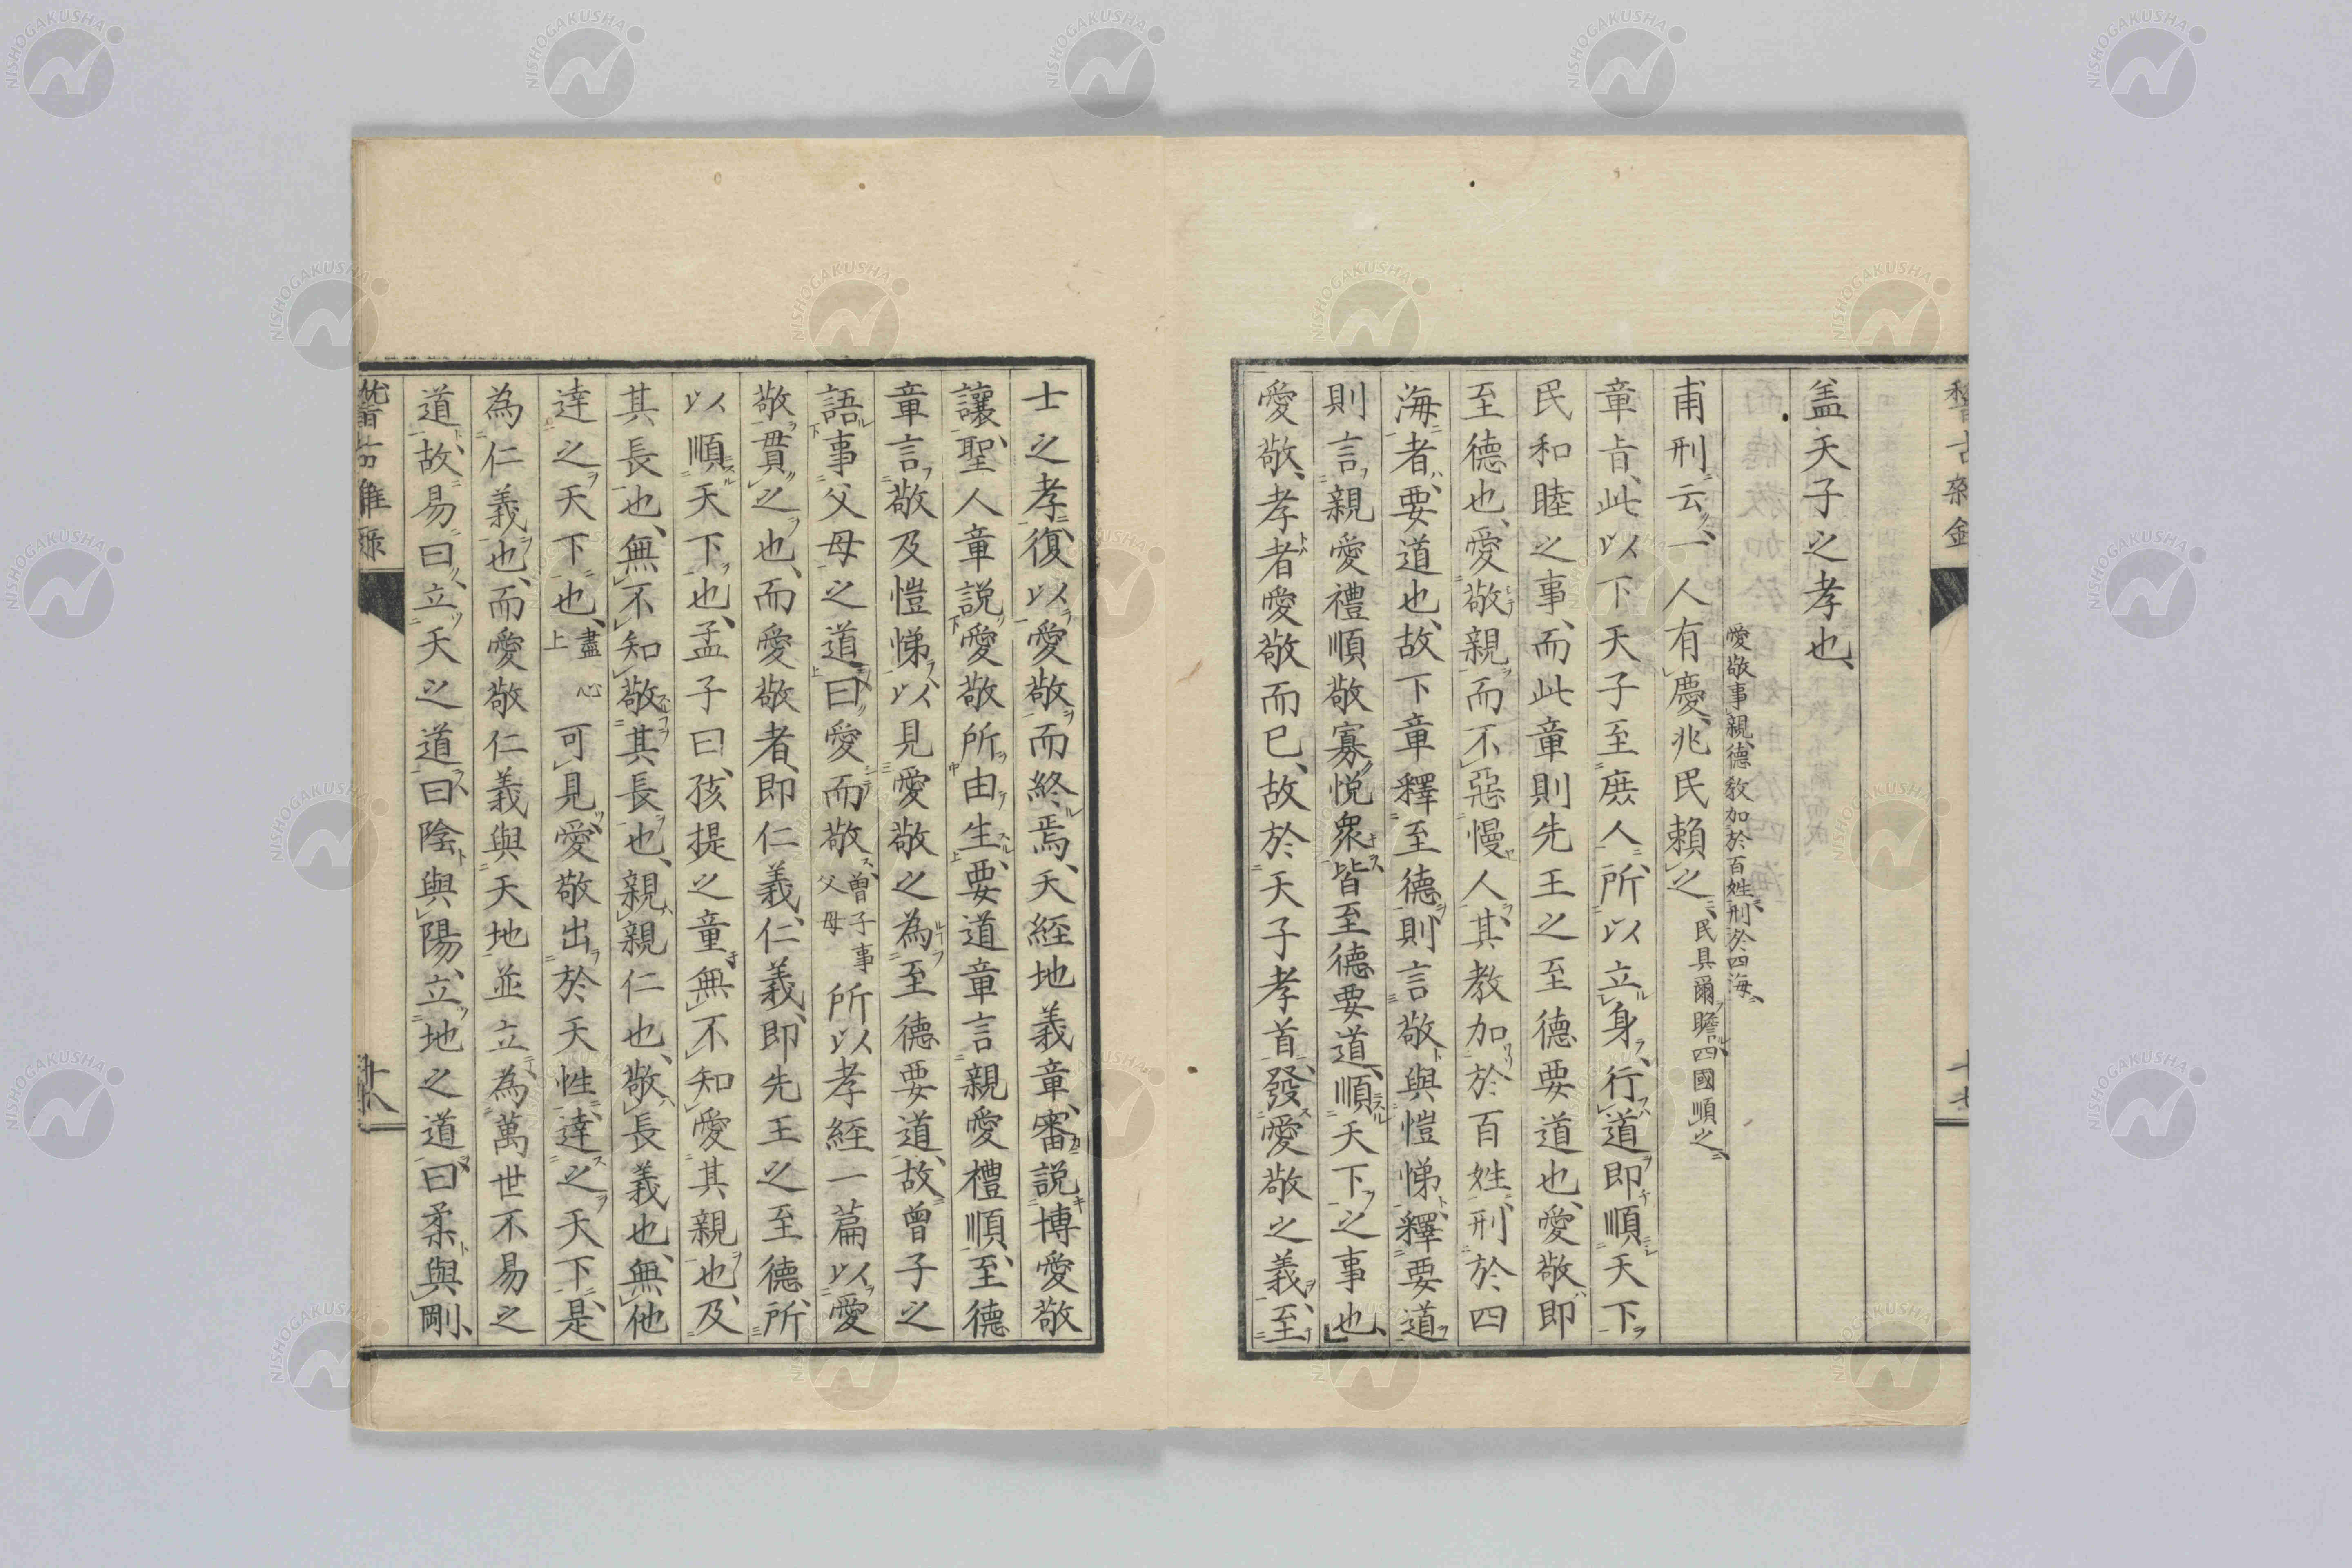 盖天子之孝也、
愛敬事親、德敎加於百姓、刑於四海、
甫刑云、一人有慶、兆民賴之、民具爾瞻、四國順之、
章㫖、此以下天子至庶人、所以立身、行道即順天下
民和睦之事、而此章則先王之至德要道也、愛敬即
至德也、愛敬親而不惡慢人、其教加於百姓、刑於四
海者、要道也、故下章釋至德、則言敬與愷悌、釋要道
則言親愛禮順、敬寡悅衆、皆至德要道、順天下之事也、
愛敬、孝者愛敬而已、故於天子孝首、發愛敬之義、至
士之孝、復以愛敬而終焉、天経地義章、審說博愛敬
讓、聖人章說愛敬所由生、要道章言親愛禮順、至德
章言敬及愷悌、以見愛敬之為至德要道、故曾子之
語事父母之道、曰愛而敬、曾子事父母所以孝経一篇以愛
敬貫之也、而愛敬者、即仁義、仁義、即先王之至德、所
以順天下也、孟子曰、孩提之童、無不知愛其親也、及
其長也、無不知敬其長也、親親仁也、敬長義也、無他
達之天下也、盡心上可見愛敬出於天性、達之天下、是
為仁義也、而愛敬仁義與天地並立、為萬世不易之
道、故易曰、立天之道、曰陰與陽、立地之道、曰柔與剛、
十八